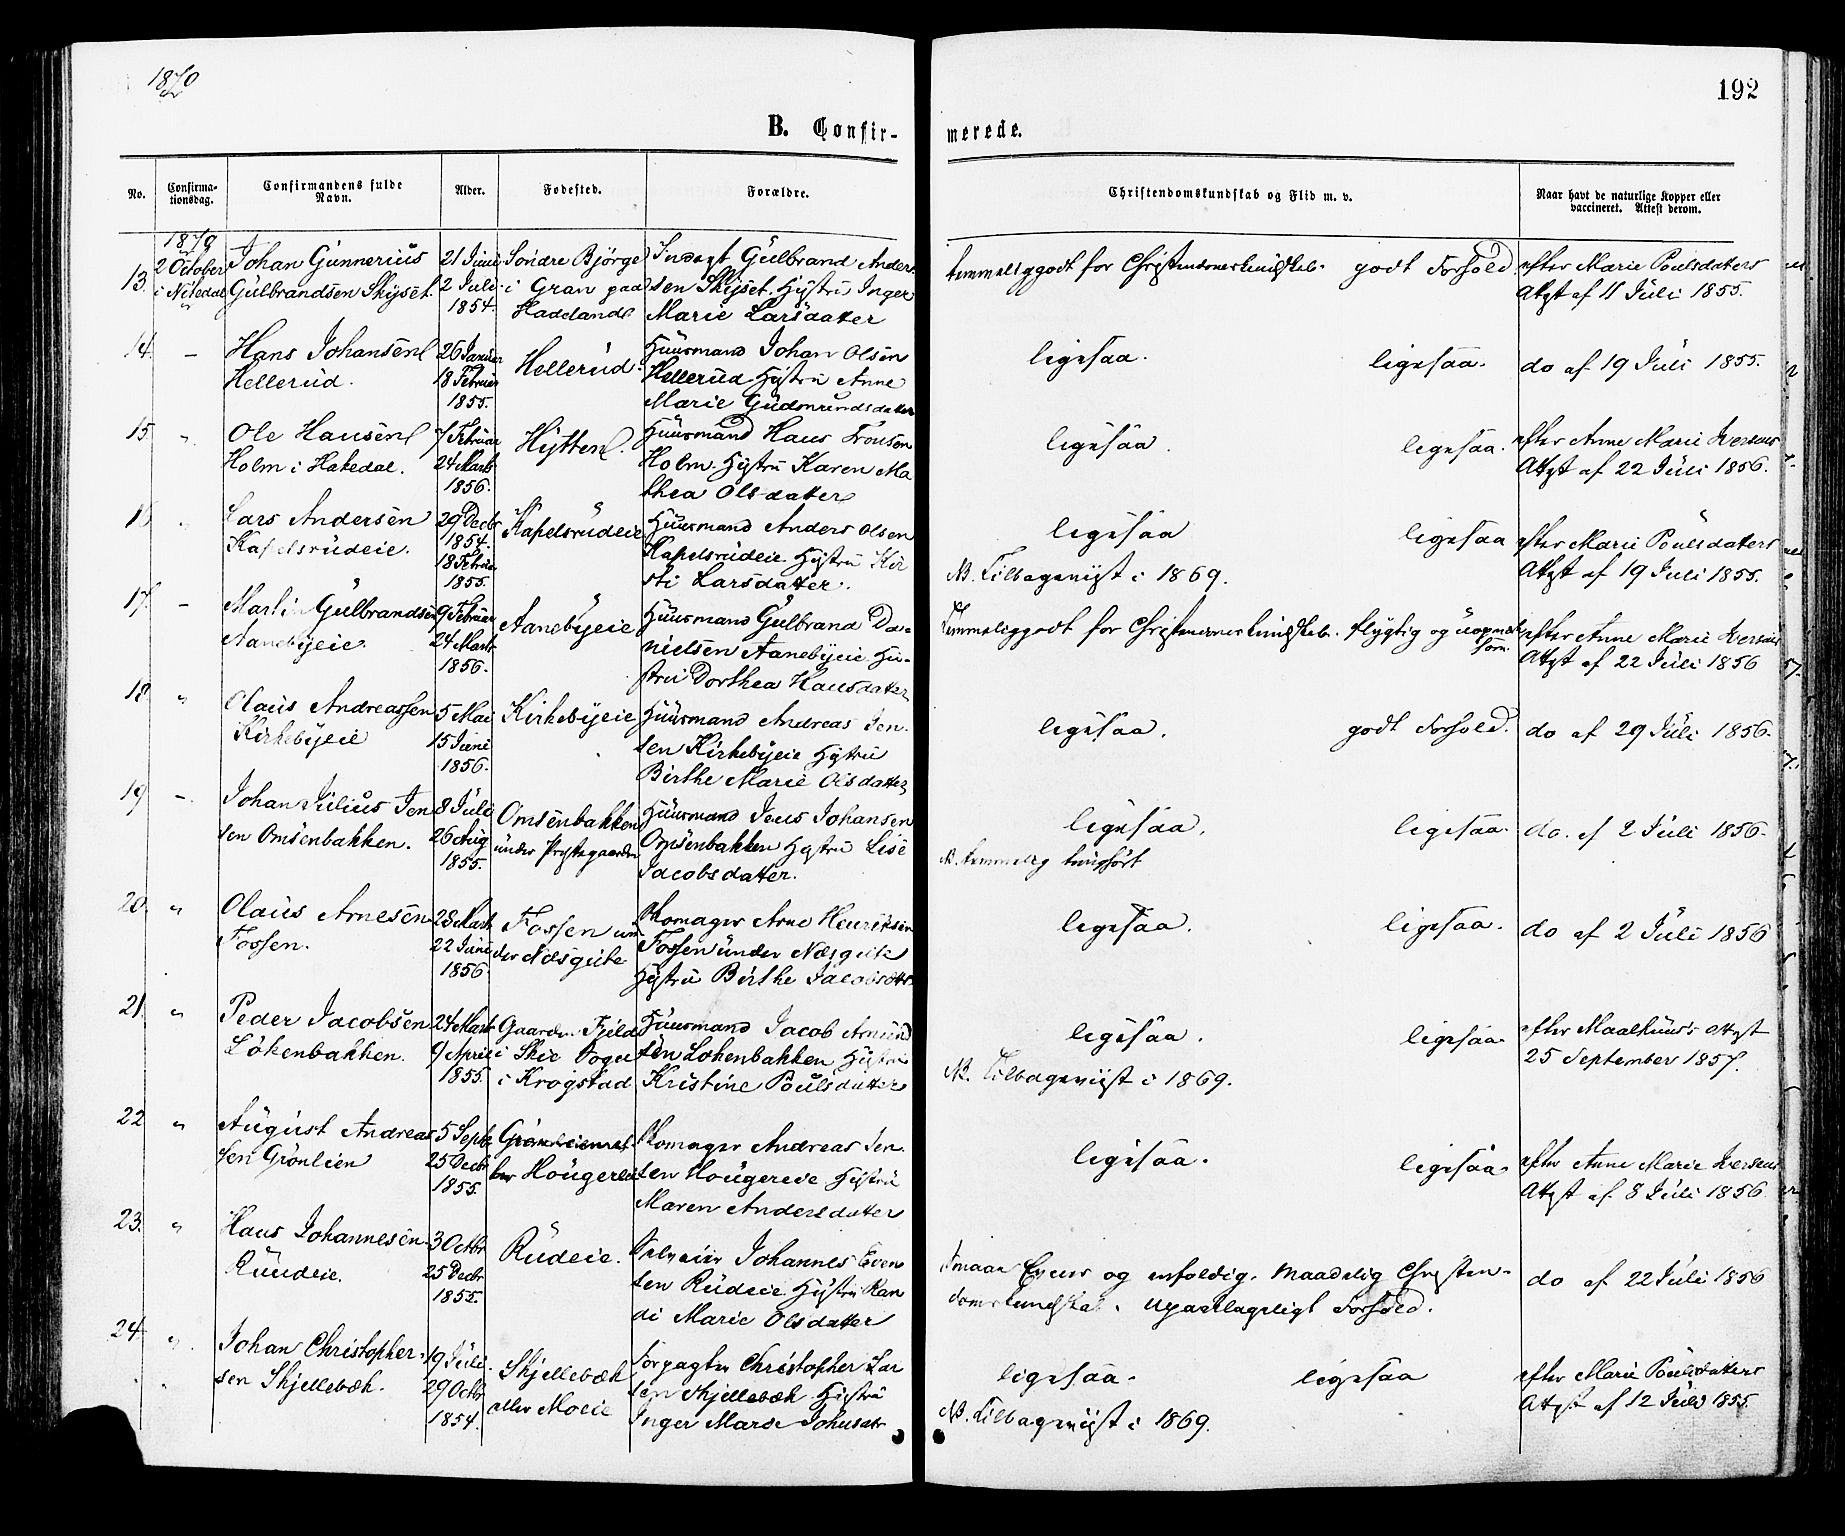 1870
192
B. Confir-
merede.
No.
Confirma-
tionsdag.
Confirmandens fulde
Navn.
Alder.
Fødested.
Forældre.
Christendomskundskab og Flid m. v.
Naar havt de naturlige Kopper eller
vaccineret. Attest derom.
1870
13. 2 October Johan Gunnerius 21 Juni Søndre Bjørge Indagt Gulbrand Anders
i Nitedal Gulbrandsen Skyset. 2 Juli i Gran paa sen Skyset. Hustru Inger
1854. Hadeland Marie Larsdatter
temmeliggodt for Christendomskundskab. godt Forhold. efter Marie Poulsdatters
Attest af 11 Juli 1855.
14. – Hans Johansen 26 Januar Hellerud. Huusmand Johan Olsen
Hellerud. 18 Februar Hellerud Hustru Anne
1855. Marie Gudmundsdatter
ligesaa. ligesaa. do af 19 Juli 1855.
15. " Ole Hansen 7 Februar Hytten. Huusmand Hans Tronsen
Holm i Hakedal. 24 Marts Holm. Hustru Karen Ma
1856. thea Olsdatter
ligesaa. ligesaa. efter Anne Marie Iversens
Attest af 22 Juli 1856.
16 " Lars Andersen 29 Decbr Kapelsrudeie Huusmand Anders Olsen
Kapelsrudeie. 1854. Kapelsrudeie Hustru Kir
18 Februar sti Larsdatter.
1855.
ligesaa ligesaa efter Marie Poulsdatters
NB. Tilbageviist i 1869. Attest af 19 Juli 1855.
17. – Martin Gulbrandsen 9 Februar Aanebyeie Huusmand Gulbrand Da-
Aanebyeie. 24 Marts nielsen Aanebyeie Hu-
1856. stru Dorthea Hansdatter
Temmeliggodt for Christendomskundskab. flygtig og uopmærk efter Anne Marie Iversens
som. Attest af 22 Juli 1856
18 " Olaus Andreassen 5 Mai Kirkebyeie Huusmand Andreas Jen
Kirkebyeie 15 Juni sen Kirkebyeie Hustru
1856. Birthe Marie Olsdatter
ligesaa. godt Forhold. do af 29 Juli 1856.
19 –. Johan Julius Jen 8 Juli Omsenbakken Huusmand Jens Johansen
sen Omsenbakken. 26 Aug under Præstegaarden Omsenbakken Hustru Lise
1855. Jacobsdatter.
ligesaa. ligesaa. do. af 2 Juli 1856.
NB. temmelig tunghørt
20. " Olaus Arnesen 28 Marts Fossen un Skomager Arne Henriksen
Fossen. 22 Juni der Næsgute Fossen under Næsgute
1856 Hustru Birthe Jacobsdttr.
ligesaa. ligesaa. do af 2 Juli 1856
21. " Peder Jacobsen 24 Marts Gaarden Fjeld Huusmand Jacob Amund
Løkenbakken. 9 April i Skie Sogn sen Løkenbakken Hustru
1855. i Krogstad Kristine Poulsdatter
ligesaa. ligesaa. efter Maalkuurs Attest
NB. Tilbageviist i 1869. 25 September 1857.
22 " August Andreas 5 Septb Skomager Andreas Jen
sen Grønlien 25 Decbr Hougereie sen Hougereie Hustru
1855. Maren Andersdatter
ligesaa. ligesaa. efter Anne Marie Iversens
Attest af 8 Juli 1856
23. " Hans Johannesen 3 Octbr Rudeie. Selveier Johannes Even
Ruudeie. 25 Decbr sen Rudeie Hustru Ran
1855. di Marie Olsdatter
smaae Evner og enfoldig. Maadelig Christen- do af 22 Juli 1856
domskundskab. Upaaklageligt Forhold.
24. " Johan Christopher- 19 Juli Skjellebæk Forpagter Christopher Lar
sen Skjellebæk. 29 Octbr eller Moeie sen Skjellebæk Hustru
1854. Inger Marie Johnsdtr
ligesaa. ligesaa efter Marie Poulsdatters
NB. Tilbageviist i 1869. Attest af 12 Juli 1855.